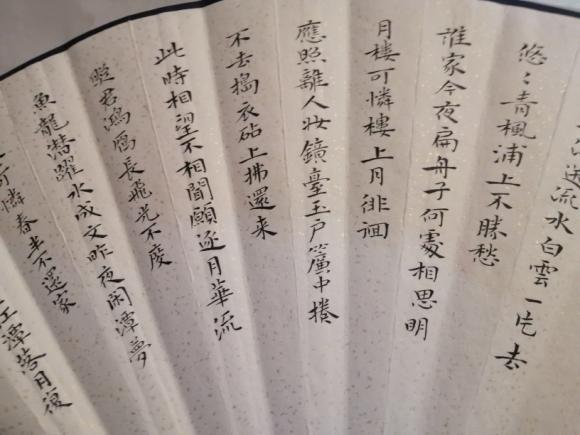 送流水白雲一片去
悠〻青楓浦上不勝愁
誰家今夜扁舟子何處相思明
月樓可憐樓上月徘徊
應照離人妝鏡臺玉戶簾中捲
不去搗衣砧上拂還来
此時相望不相聞願逐月華流
照君鴻雁長飛光不度
魚龍潛躍水成文昨夜閑潭夢
可憐春半不還家
江潭落月復